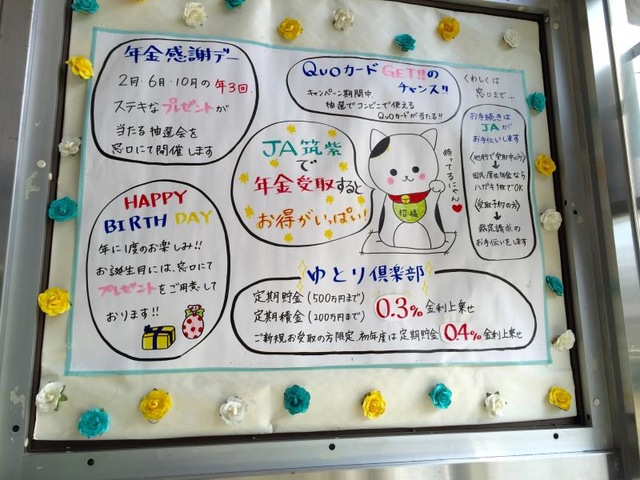 年金感謝デー
2月・6月・10月の年3回
ステキなプレゼントが
当たる抽選会を
窓口にて開催します
QUOカードGET!!の
チャンス!!
キャンペーン期間中、
抽選でコンビニで使える
QUOカードが当たる!!
くわしくは
窓口まで…
お手続きは
JAが
お手伝いします
〈他行で受取中の方〉
→
国民/厚生年金なら
ハガキ1枚でOK
〈受取予約の方〉
→
裁定請求の
お手伝いをします
JA筑紫
で
年金受取すると
お得がいっぱい!
待ってるにゃん
招福
HAPPY
BIRTHDAY
年に1度のお楽しみ!!
お誕生月には、窓口にて
プレゼントをご用意して
おります!!
ゆとり倶楽部
定期貯金(500万円まで)
定期積金(200万円まで)
0.3%金利上乗せ
ご新規お受取の方限定、初年度は定期貯金0.4%金利上乗せ